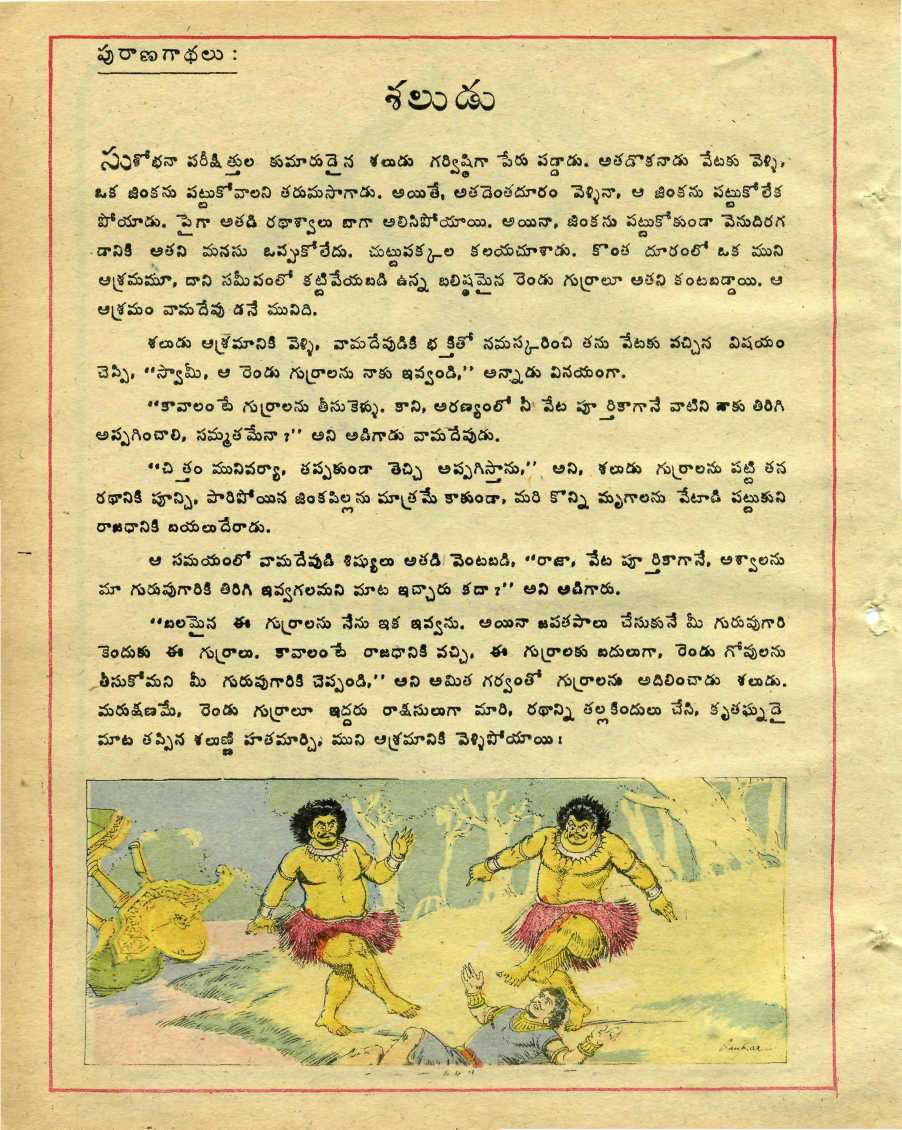 పురాణగాథలు :
శలుడు
సుశోభనా పరీక్షిత్తుల కుమారుడైన శలుడు గర్విష్ఠిగా పేరు పడ్డాడు. అతడొకనాడు వేటకు వెళ్ళి,
ఒక జింకను పట్టుకోవాలని తరుమసాగాడు. అయితే, అతదెంతదూరం వెళ్ళినా, ఆ జింకను పట్టుకోలేక
పోయాడు. పైగా అతడి రథాశ్వాలు బాగా అలిసిపోయాయి. అయినా, జింకను పట్టుకోకుండా వెనుదిరగ
డానికి అతని మనసు ఒప్పుకోలేదు. చుట్టుపక్కల కలయచూశాడు. కొంత దూరంలో ఒక ముని
ఆశ్రమమూ, దాని సమీపంలో కట్టివేయబడి ఉన్న బలిష్ఠమైన రెండు గుర్రాలూ అతని కంటబడ్డాయి. ఆ
ఆశ్రమం వామదేవు డనే మునిది.
శలుడు ఆశ్రమానికి వెళ్ళి, వామదేవుడికి భక్తితో నమస్కరించి తను వేటకు వచ్చిన విషయం
చెప్పి, "స్వామీ, ఆ రెండు గుర్రాలను నాకు ఇవ్వండి," అన్నాడు వినయంగా.
"కావాలంటే గుర్రాలను తీసుకెళ్ళు. కాని, అరణ్యంలో నీ వేట పూర్తికాగానే వాటిని నాకు తిరిగి
అప్పగించాలి, సమ్మతమేనా ?" అని అడిగాడు వామదేవుడు.
"చిత్తం మునివర్యా, తప్పకుండా తెచ్చి అప్పగిస్తాను," అని, శలుడు గుర్రాలను పట్టి తన
రథానికి పూన్చి, పారిపోయిన జింకపిల్లను మాత్రమే కాకుండా, మరి కొన్ని మృగాలను వేటాడి పట్టుకుని
రాజధానికి బయలుదేరాడు.
ఆ సమయంలో వామదేవుడి శిష్యులు అతడి వెంటబడి, "రాజా, వేట పూర్తికాగానే, అశ్వాలను
మా గురువుగారికి తిరిగి ఇవ్వగలమని మాట ఇచ్చారు కదా ?" అని అడిగారు.
"బలమైన ఈ గుర్రాలను నేను ఇక ఇవ్వను. అయినా జపతపాలు చేసుకునే మీ గురువుగారి
కెందుకు ఈ గుర్రాలు. కావాలంటే రాజధానికి వచ్చి, ఈ గుర్రాలకు బదులుగా, రెండు గోవులను
తీసుకోమని మీ గురువుగారికి చెప్పండి," అని అమిత గర్వంతో గుర్రాలను అదిలించాడు శలుడు.
మరుక్షణమే, రెండు గుర్రాలూ ఇద్దరు రాక్షసులుగా మారి, రథాన్ని తల్లకిందులు చేసి, కృతఘ్నుడై
మాట తప్పిన శలుణ్ణి హతమార్చి, ముని ఆశ్రమానికి వెళ్ళిపోయాయి !
Sankar